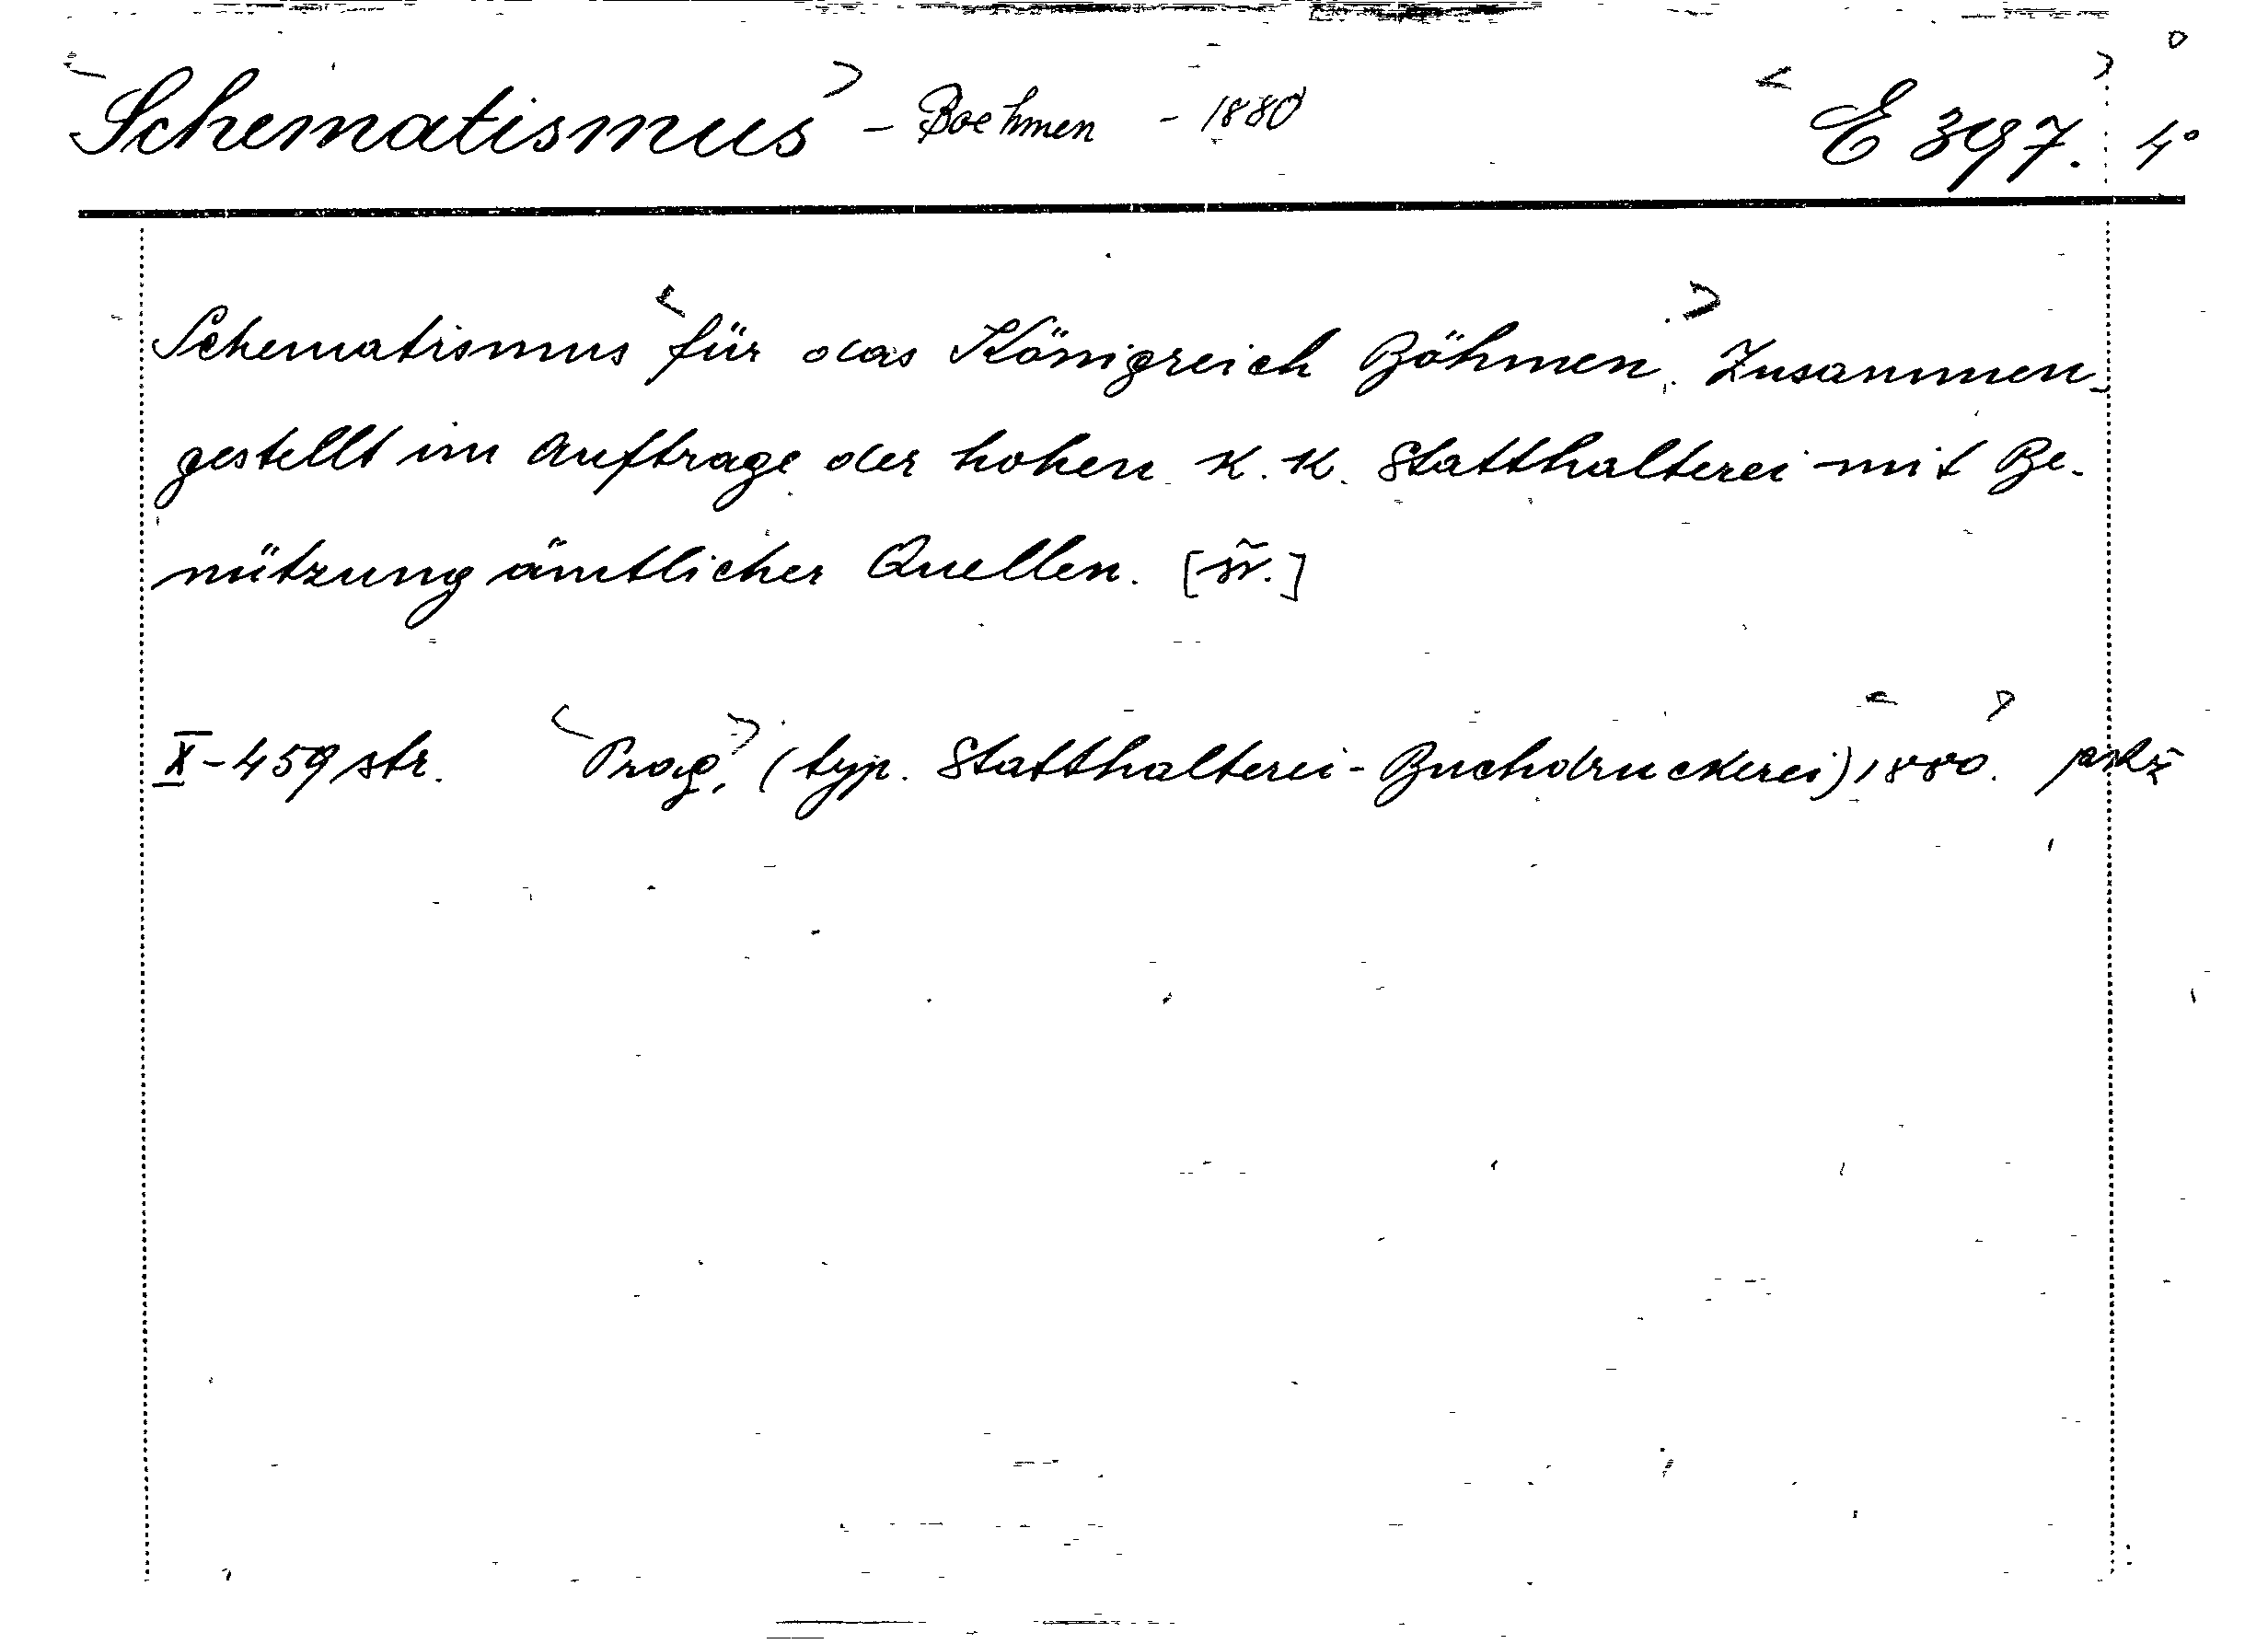 Schematismus - Boehmen - 1880 E 397. 4°
Schematismus für das Königreich Böhmen. Zusammen-
gestellt im Auftrage der hohen K. K. Statthalterei mit Be-
nützung ämtlicher Quellen.
X-459 str. Prag, (typ. Statthalterei-Buchdruckerei) 1880.